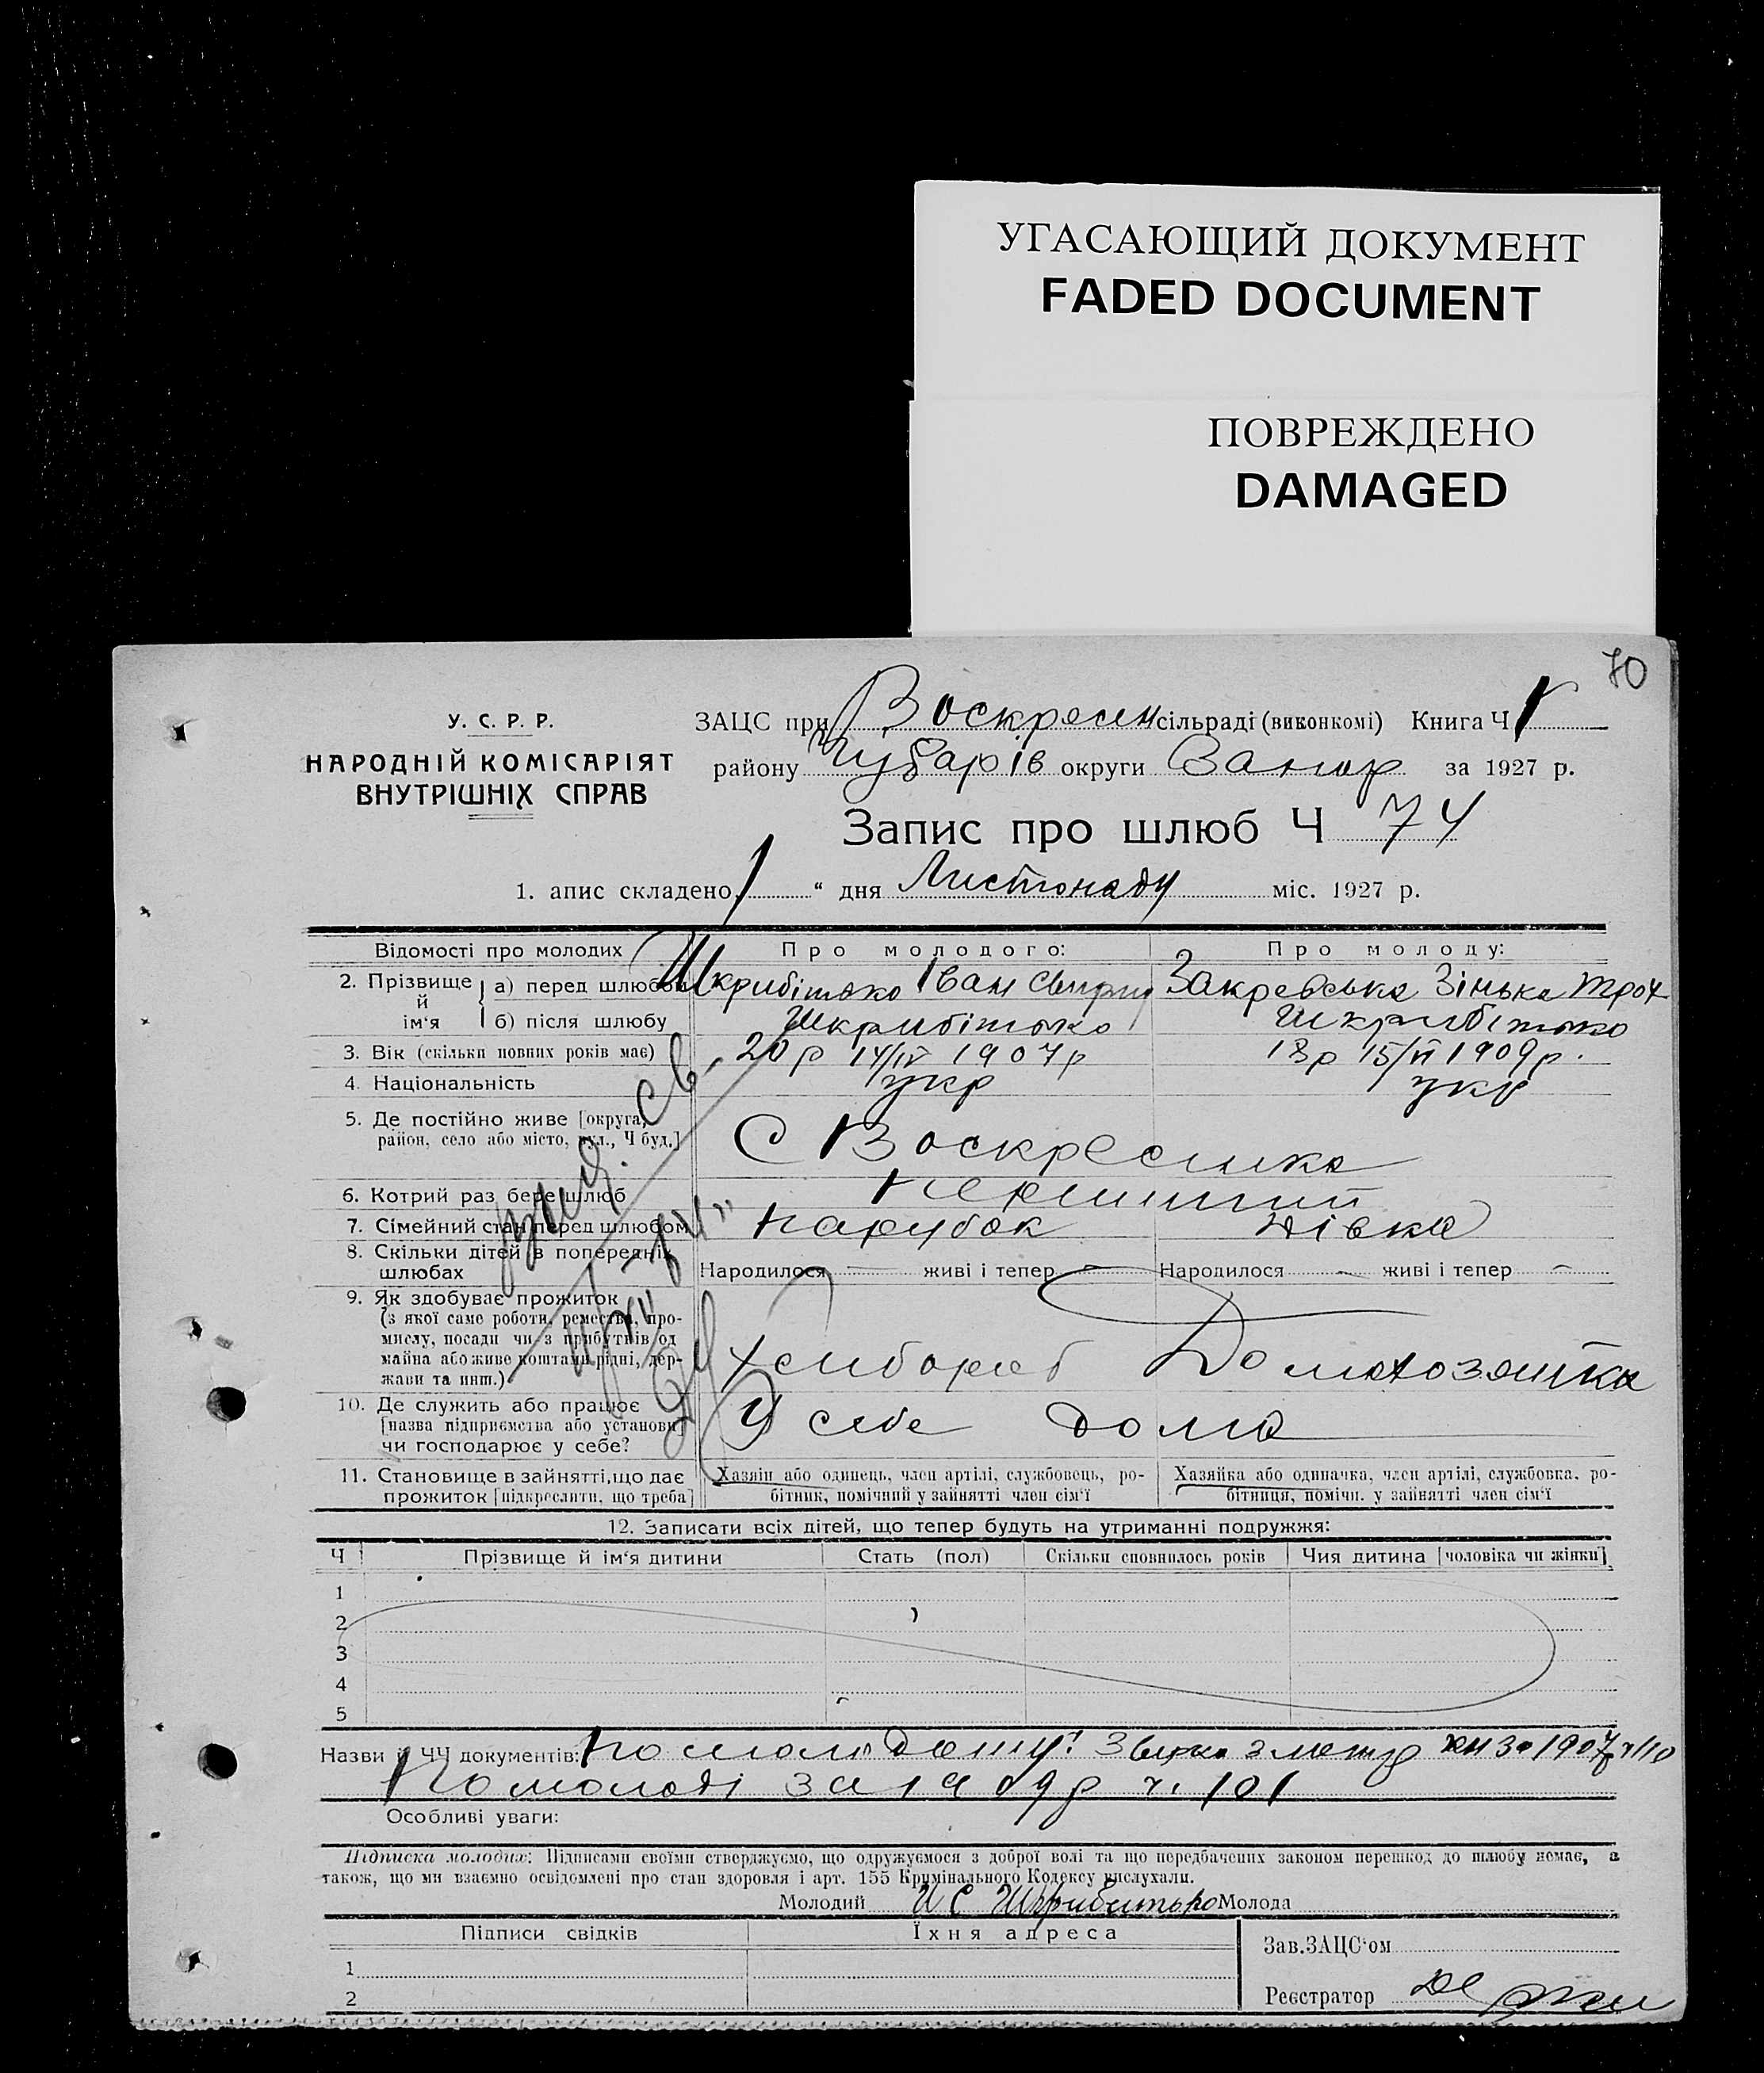 УГАСАЮЩИЙ ДОКУМЕНТ
FADED DOCUMENT
ПОВРЕЖДЕНО
DAMAGED
70
У. С. Р. Р.
НАРОДНІЙ КОМІСАРІЯТ
ВНУТРІШНІХ СПРАВ
ЗАЦС при Воскресен сільраді (виконкомі) Книга Ч 1
району Чубарів округи Запор за 1927 р.
Запис про шлюб Ч 74
1. апис складено 1 “ дня Листопаду міс. 1927 р.
Відомості про молодих Про молодого: Про молоду:
2. Прізвище й ім‘я а) перед шлюбом Шкрибітько Іван Свирид Закревська Зінька Трох
б) після шлюбу Шкрибітько Шкрибітько
3. Вік (скільки повних років має) 20 р 14/IV 1907 р 18 р 15/VI 1909 р.
4. Національність укр укр
5. Де постійно живе [округа,
район, село або місто, вул., Ч буд.] С Воскресенка
6. Котрий раз бере шлюб Перший
7. Сімейний стан перед шлюбом парубок дівка
8. Скільки дітей в попередніх
шлюбах Народилося — живі і тепер — Народилося — живі і тепер —
9. Як здобуває прожиток
(з якої саме роботи, ремества, про-
мислу, посади чи з прибутків од
майна або живе коштами рідні, дер-
жави та инш.) Хлибороб Домохозяйка
10. Де служить або працює
[назва підприємства або установи]
чи господарює у себе? У себе дома
11. Становище в зайнятті, що дає
прожиток [підкреслити, що треба]
Хазяїн або одинець, член артілі, службовець, ро-
бітник, помічний у зайнятті член сім‘ї
Хазяйка або одиначка, член артілі, службовка, ро-
бітниця, помічн. у зайнятті член сім‘ї
12. Записати всіх дітей, що тепер будуть на утриманні подружжя:
Ч Прізвище й ім‘я дитини Стать (пол) Скільки сповнилось років Чия дитина [чоловіка чи жінки]
1
2
3
4
5
Назви й ЧЧ документів: По молодому: з метр за 1907 р ч 110
По молоді за 1909 р ч. 101
Особливі уваги:
Підписка молодих: Підписами своїми стверджуємо, що одружуємося з доброї волі та що передбачених законом перешкод до шлюбу немає, а
також, що ми взаємно освідомлені про стан здоровля і арт. 155 Кримінального Кодексу вислухали.
Молодий И С Шкрибитько Молода
Підписи свідків Їхня адреса
1
2
Зав. ЗАЦС‘ом
Реєстратор